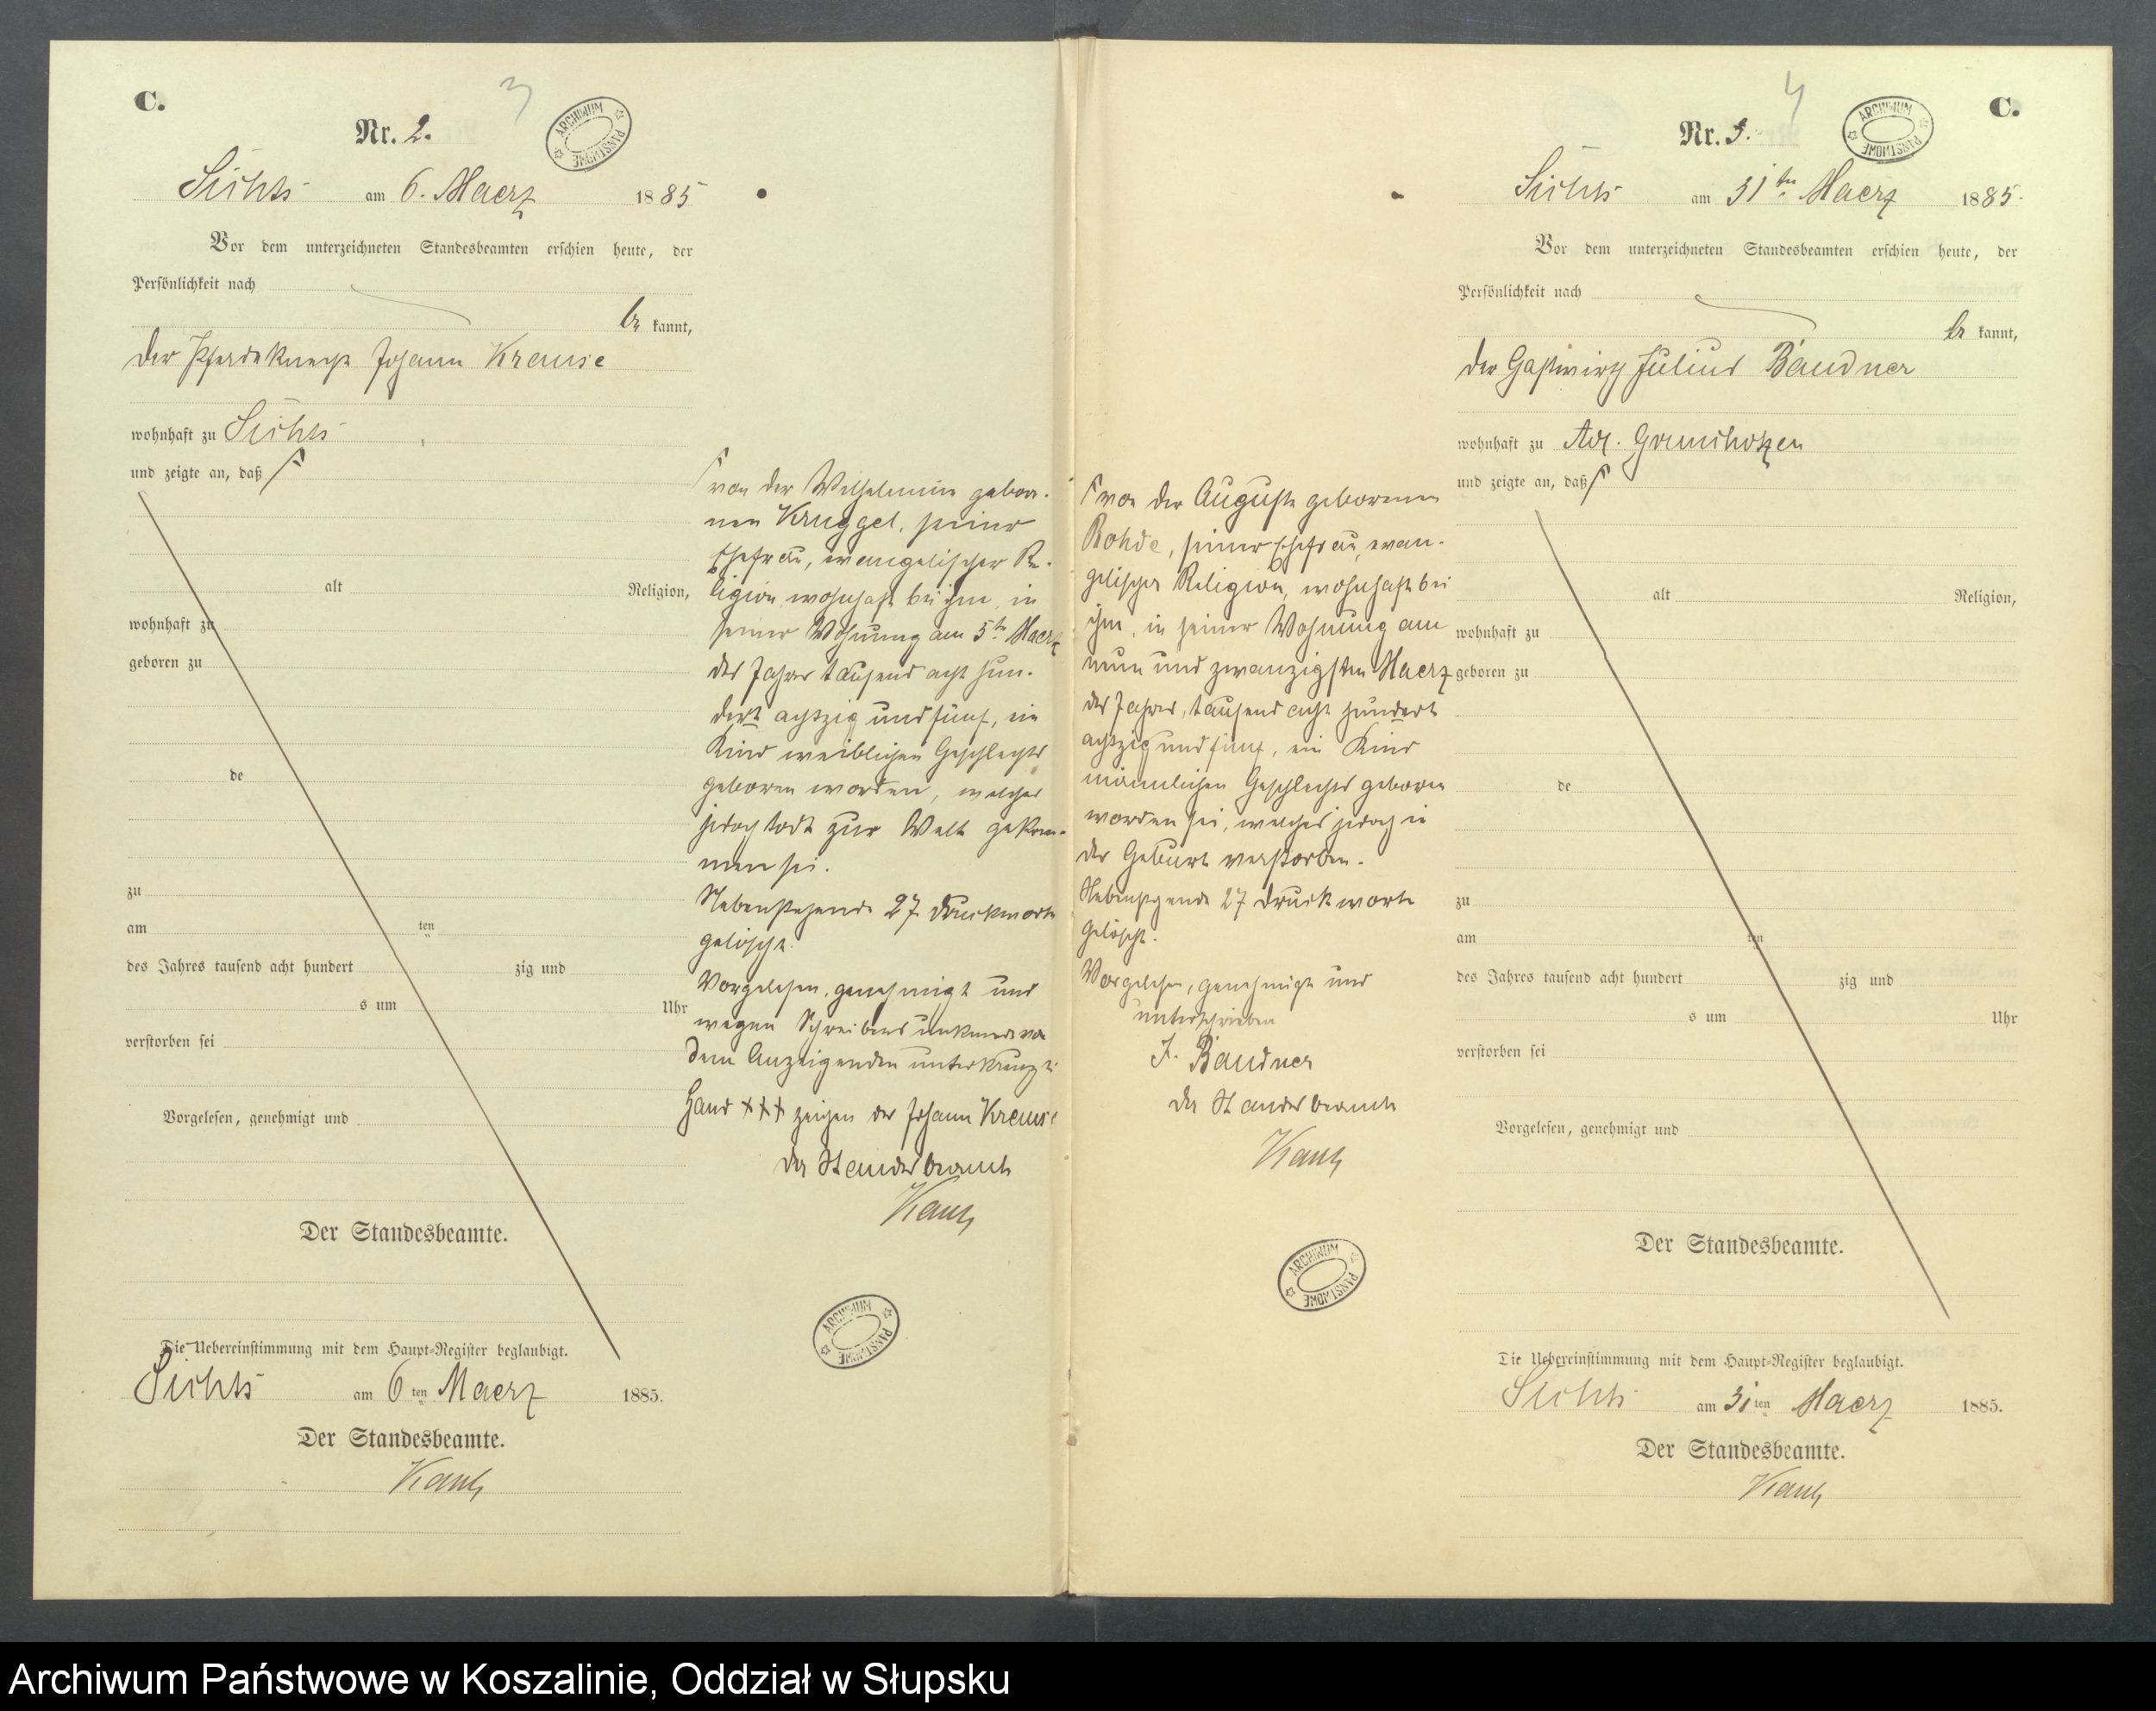 C.
3
Nr. 2.
ARCHIWUM PAŃSTWOWE
am 6. Maerz 1885
Vor dem unterzeichneten Standesbeamten erschien heute, der
Persönlichkeit nach
be kannt,
der Pferdeknecht Johann Krause
wohnhaft zu
und zeigte an, daß
alt Religion,
wohnhaft zu
geboren zu
de
zu
am ten
des Jahres tausend acht hundert zig und
s um Uhr
verstorben sei
Vorgelesen, genehmigt und
Der Standesbeamte.
Die Uebereinstimmung mit dem Haupt-Register beglaubigt.
am 6ten Maerz 1885.
Der Standesbeamte.
von der Wilhelmine gebor-
nen Kruggel, seiner
Ehefrau, evangelischer Re-
ligion wohnhaft bei ihm, in
seiner Wohnung am 5ten Maerz
des Jahres tausend acht hun-
dert achtzig und fünf, ein
Kind weiblichen Geschlechts
geboren worden, welches
jedoch todt zur Welt gekom-
men sei.
Nebenstehende 27 Druckworte
gelöscht.
Vorgelesen, genehmigt und
wegen Schreibens unkunde von
dem Anzeigenden unterkreuzt
Hand +++ zeichen des Johann Krause
der Standesbeamte
ARCHIWUM PAŃSTWOWE
von der Auguste geborenen
Rohde, seiner Ehefrau, evan-
gelischer Religion, wohnhaft bei
ihm, in seiner Wohnung am
neun und zwanzigsten Maerz
des Jahres, tausend acht hundert
achtzig und fünf, ein Kind
männlichen Geschlechts geboren
worden sei, welches jedoch in
der Geburt verstorben.
Nebenstehende 27 Druckworte
gelöscht.
Vorgelesen, genehmigt und
unterschrieben
J. Baudner
der Standesbeamte
ARCHIWUM PAŃSTWOWE
4
C.
Nr. 3.
ARCHIWUM PAŃSTWOWE
am 31ten Maerz 1885.
Vor dem unterzeichneten Standesbeamten erschien heute, der
Persönlichkeit nach
be kannt,
der Gastwirth Julius Baudner
wohnhaft zu Adl.
und zeigte an, daß
alt Religion,
wohnhaft zu
geboren zu
de
zu
am ten
des Jahres tausend acht hundert zig und
s um Uhr
verstorben sei
Vorgelesen, genehmigt und
Der Standesbeamte.
Die Uebereinstimmung mit dem Haupt-Register beglaubigt.
am 31ten Maerz 1885.
Der Standesbeamte.
Archiwum Państwowe w Koszalinie, Oddział w Słupsku